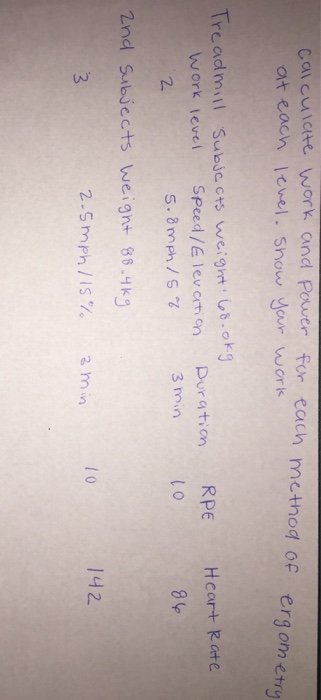 Calculate work and Power for each method of ergometry
at each level. Show your work
Treadmill Subjects weight: 68.0kg
Work level Speed/Elevation Duration RPE Heart Rate
2 5.8mph/5% 3 min 10 86
2nd Subjects Weight 88.4kg
3 2.5mph/15% 3 min 10 142